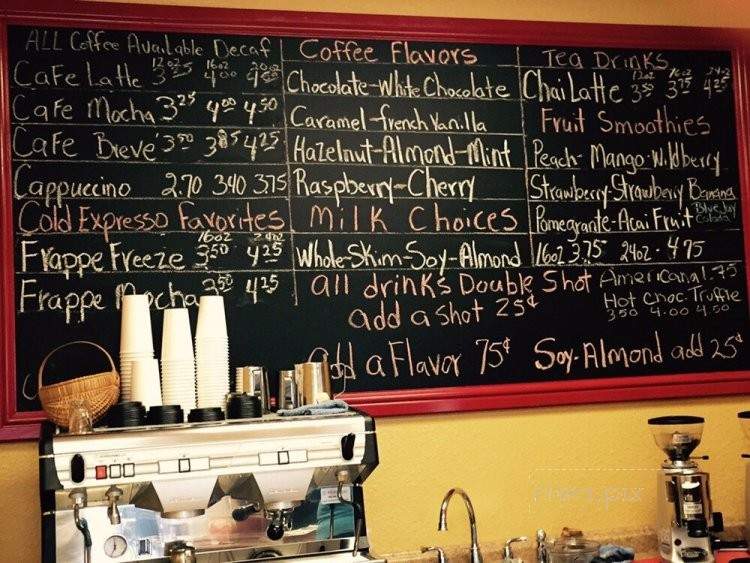 ALL Coffee Available Decaf
12oz 16oz 20oz
Cafe Latte 3 25 4 00 4 50
Cafe Mocha 3 25 4 00 4 50
Cafe Breve' 3 50 3 85 4 25
Cappuccino 2.70 340 375
Cold Expresso Favorites
16oz 24oz
Frappe Freeze 3 50 4 25
Frappe Mocha 3 50 4 25
Coffee Flavors
Chocolate-White Chocolate
Caramel-french Vanilla
Hazelnut-Almond-Mint
Raspberry-Cherry
Milk Choices
Whole-Skim-Soy-Almond
Tea Drinks
12oz 16oz 24oz
Chai Latte 3 50 3 75 4 25
Fruit Smoothies
Peach-Mango-Wildberry
Strawberry-Strawberry Banana
Pomegrante-Acai Fruit Blue Jay Colada
16oz 3.75 24oz - 4 75
all drinks Double Shot
add a shot 25¢
Americana 1.75
Hot Choc. Truffle
3 50 4.00 4.50
add a Flavor 75¢
Soy-Almond add 25¢